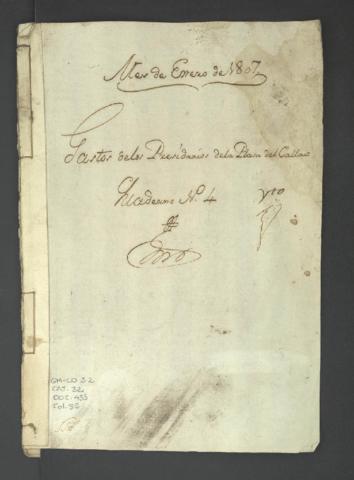 Mes de Enero de 1807
Gastos delos Presidarios dela Plasa del Callao
Quaderno N. 4 Vto
GM-CO 32
CAJ. 32
DOC. 455
Fol. 36